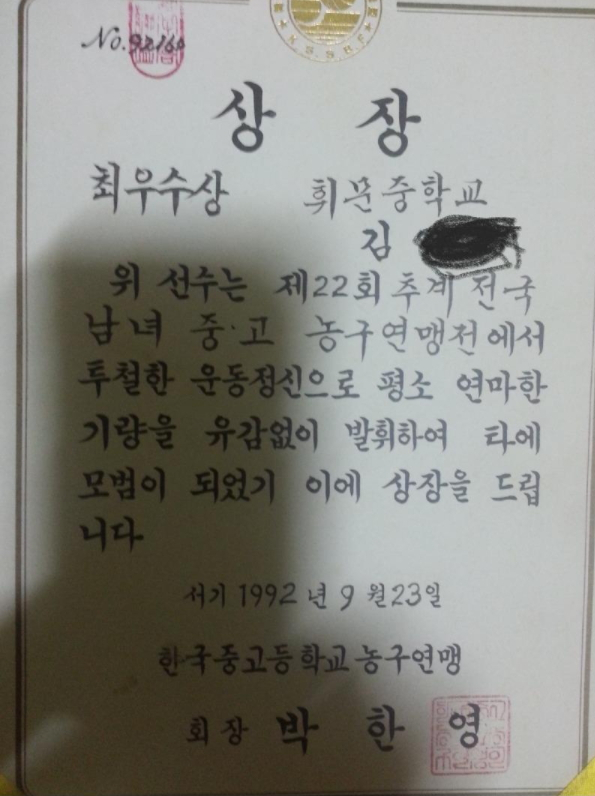 No. 92160
상 장
최우수상 휘문중학교
김
위 선수는 제22회 추계 전국
남녀 중·고 농구연맹전에서
투철한 운동정신으로 평소 연마한
기량을 유감없이 발휘하여 타에
모범이 되었기 이에 상장을 드립
니다
서기 1992년 9월 23일
한국중고등학교농구연맹
회장 박 한 영